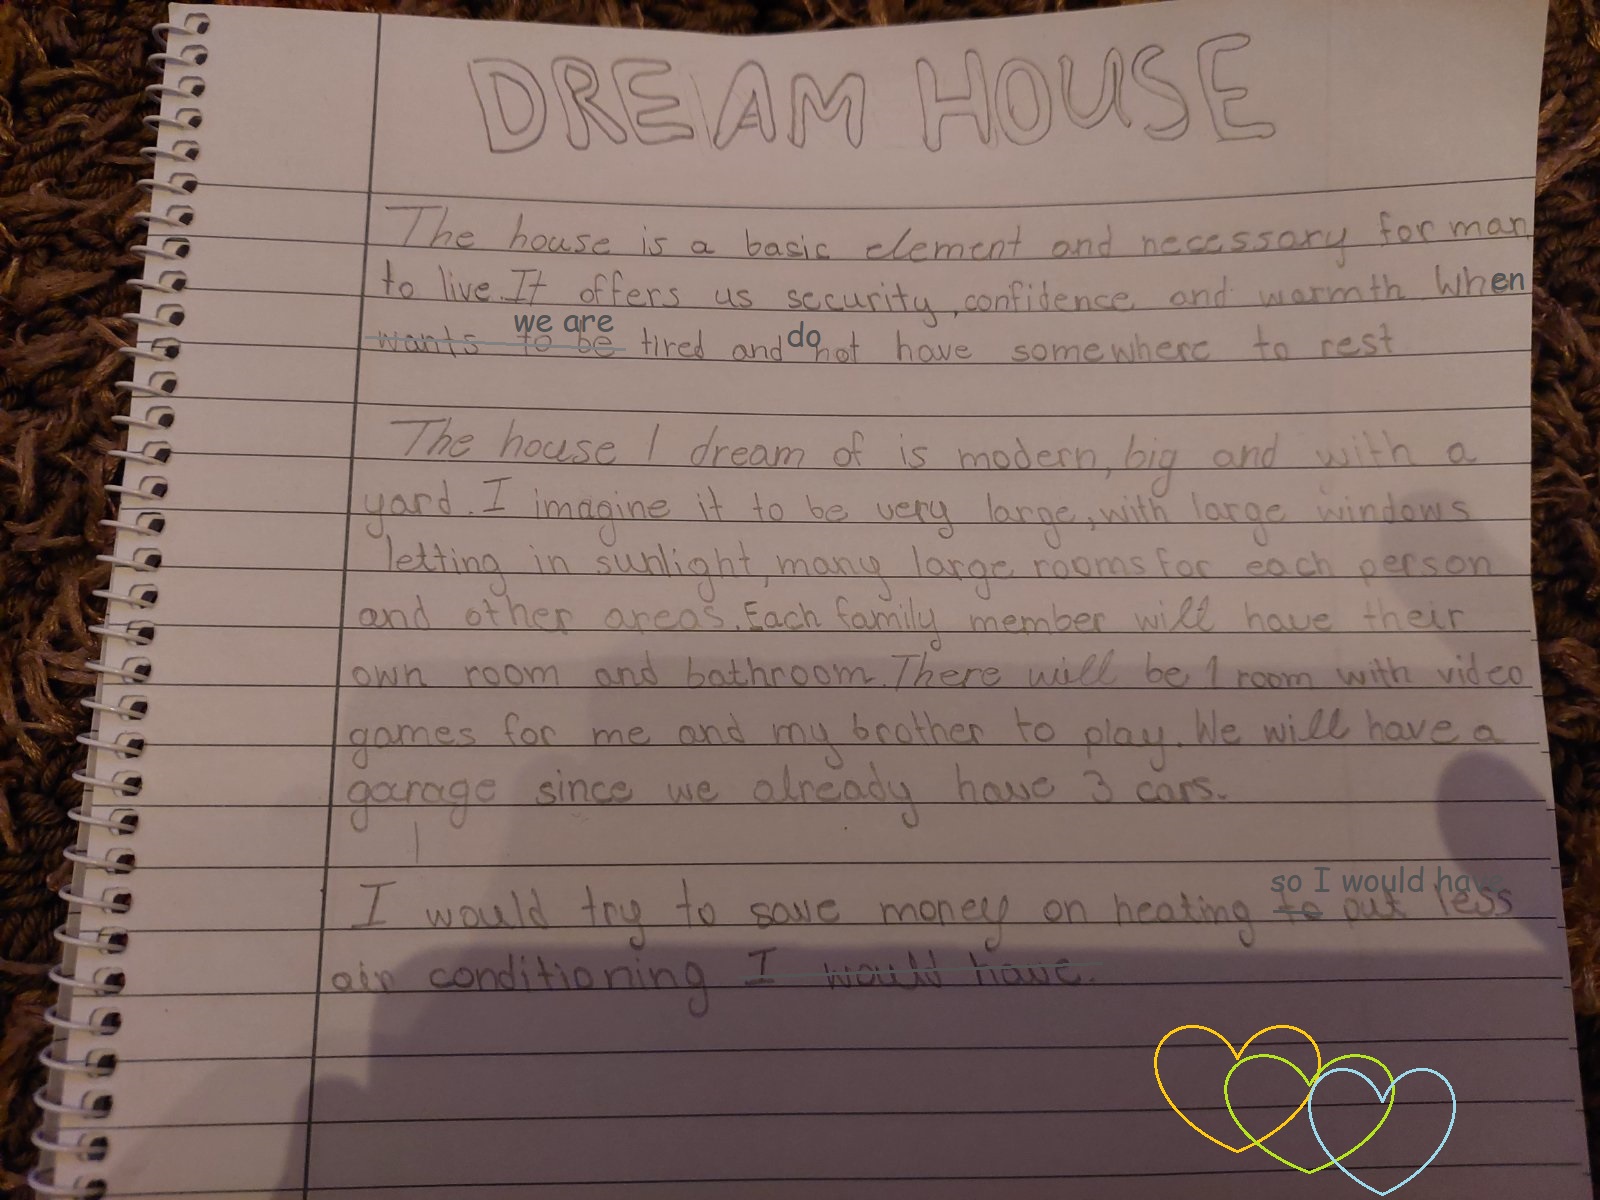 DREAM HOUSE
The house is a basic element and necessary for man
to live. It offers us security, confidence and warmth when
we are
wants to be tired and do not have somewhere to rest
The house I dream of is modern, big and with a
yard. I imagine it to be very large, with large windows
letting in sunlight, many large rooms for each person
and other areas. Each family member will have their
own room and bathroom. There will be 1 room with video
games for me and my brother to play. We will have a
garage since we already have 3 cars.
so I would have
I would try to save money on heating to put less
air conditioning I would have.